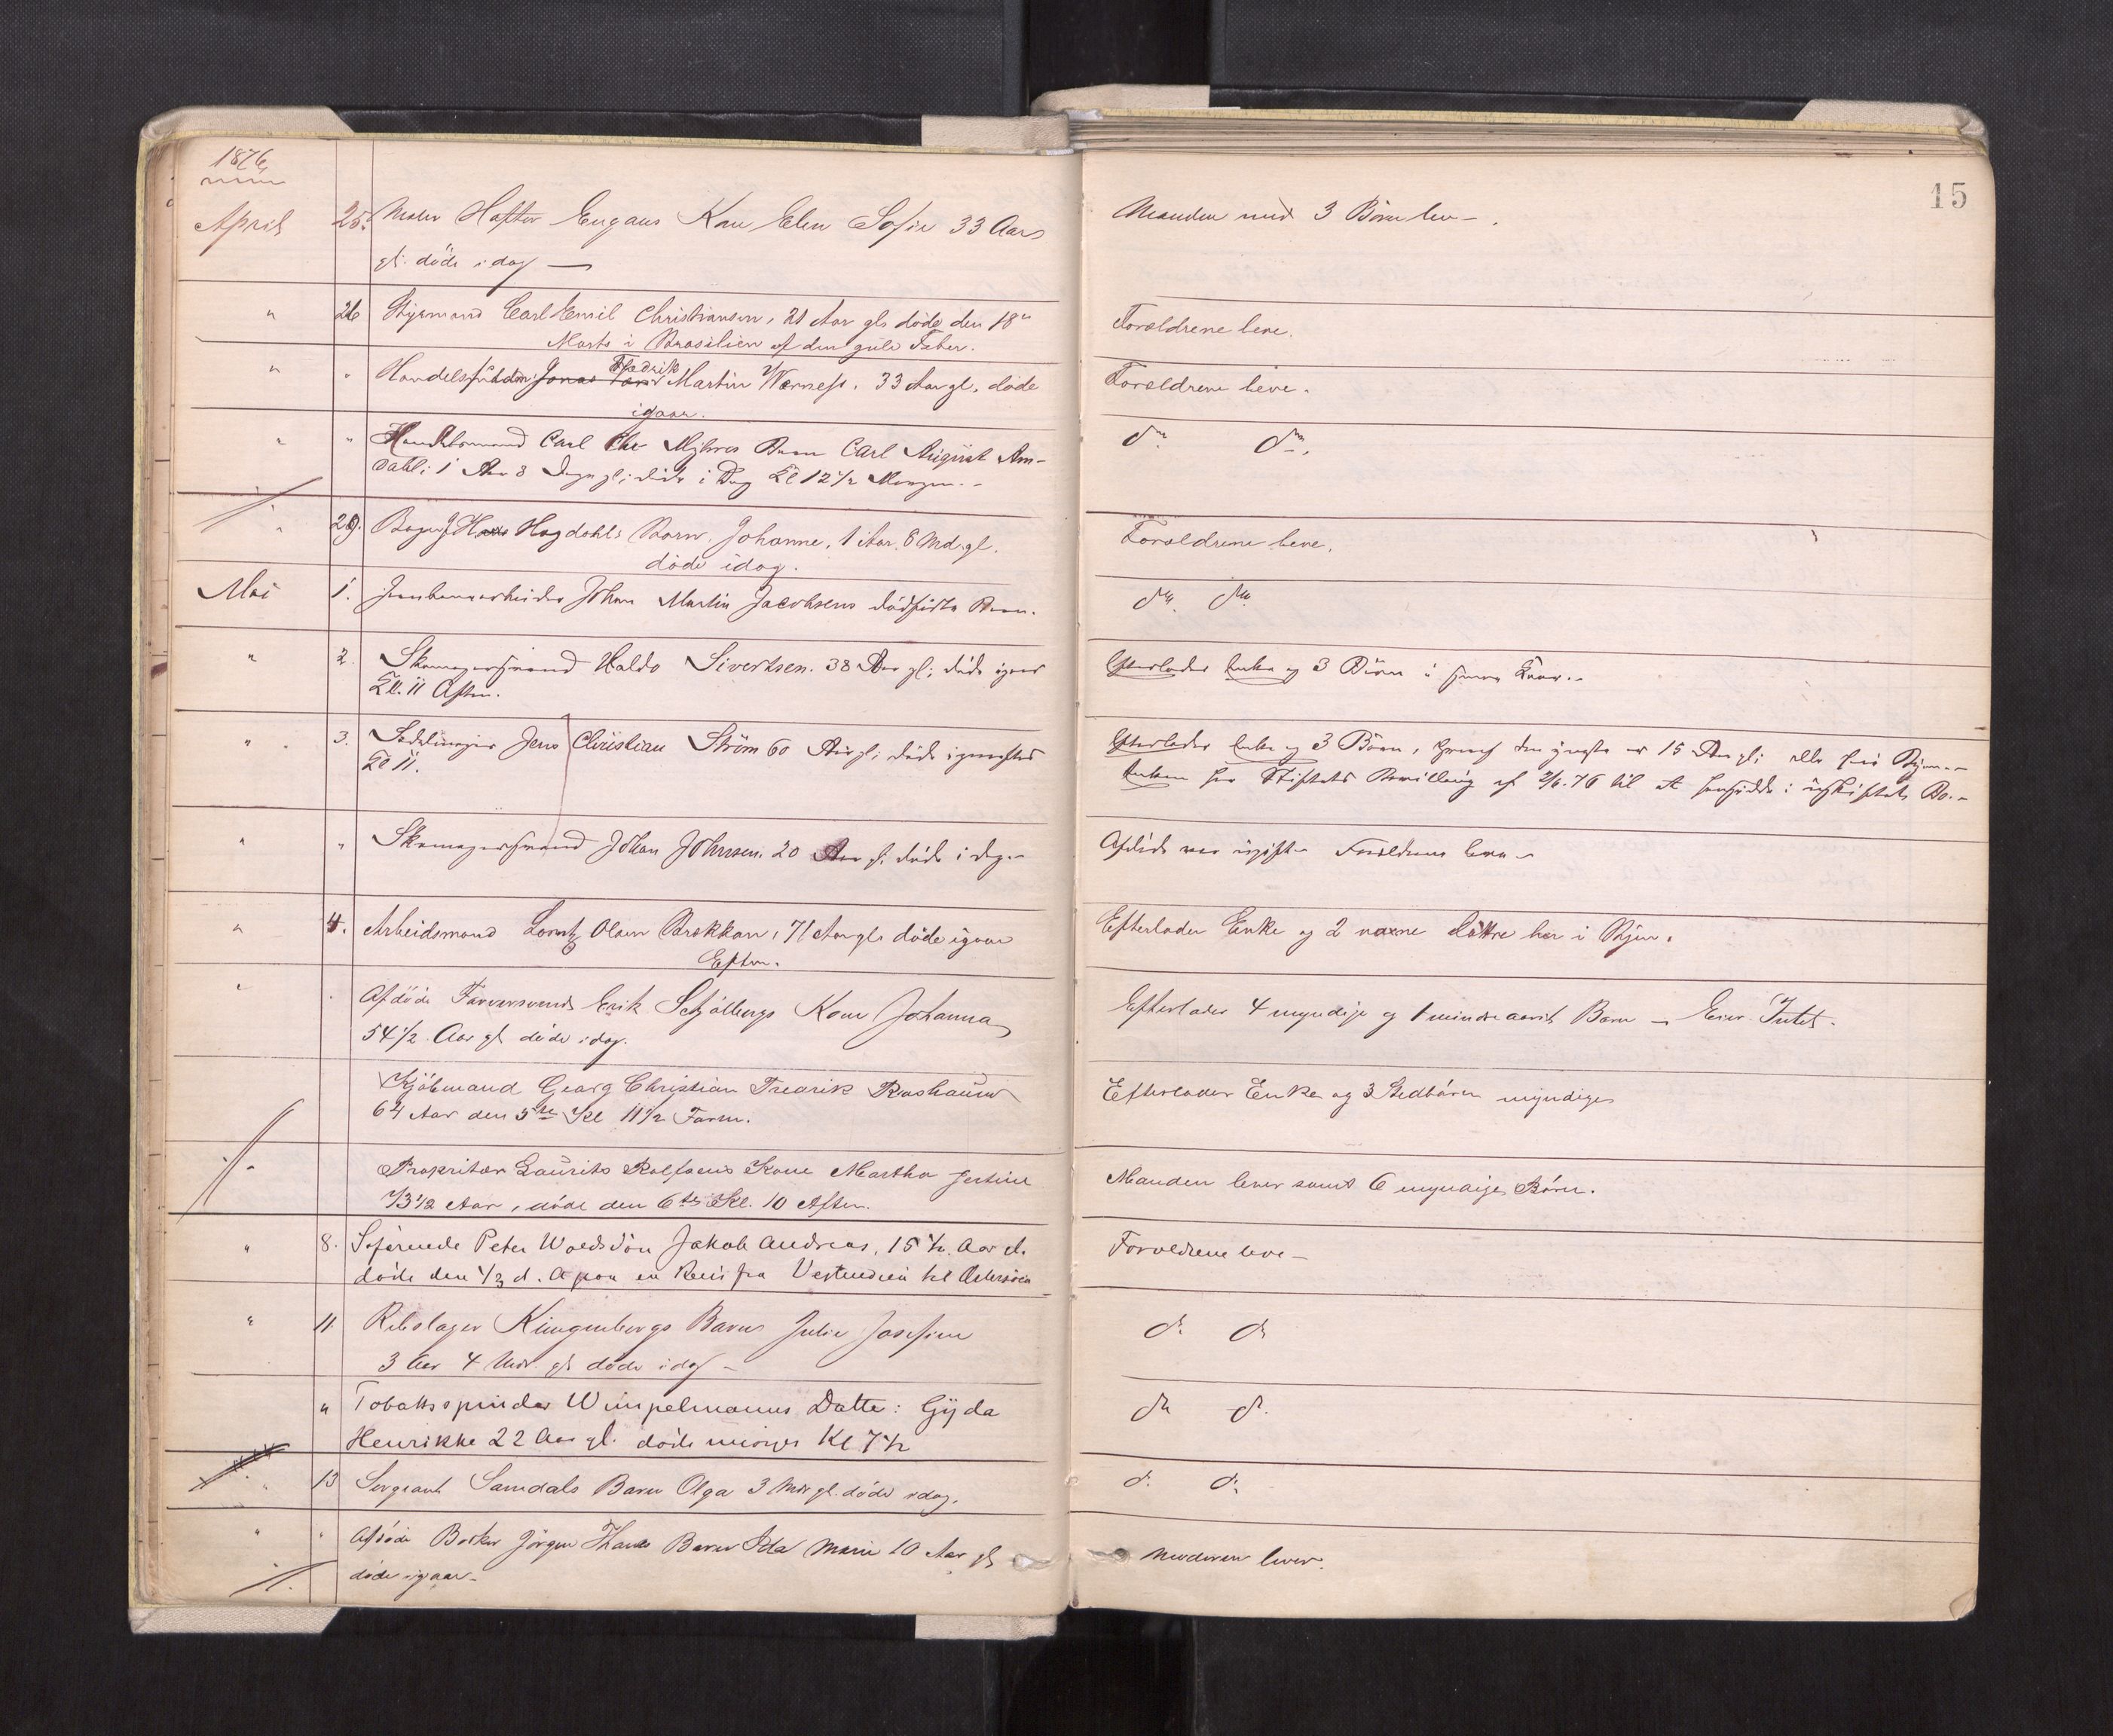 1876
15
April 25. Maler Hofter Engans Kone Elen Sofie 33 Aars
gl. døde idag —
Manden med 3 Børn lev.
" 26 Styrmand Carl Emil Christiansen, 21 Aar gl. døde den 18de
Marts i Brasilien af den gule Feber.
Forældrene leve.
" " Fredrik
Handelsfuldm. Jonas Martin Werness. 33 Aar gl. døde
igaar.
Forældrene leve.
" " Handelsmand Carl Chr Myhres Barn Carl August Am-
dahl; 1 Aar 8 Dage gl; døde i Dag Kl 12 1/2 Morgen.
do. do.
" 29. Bager J Hagdahls Barn Johanne, 1 Aar 6 Md. gl.
døde idag.
Forældrene leve.
Mai 1. Jernbanearbeider Johan Martin Jacobsens dødfødte Barn.
do. do.
" 2. Skomagersvend Haldo Sivertsen. 38 Aar gl; døde igaar
Kl. 11 Aften.
Efterlader Enke og 3 Børn i smaa Kaar.
" 3. Sadelmager Jens Christian Strøm 60 Aar gl; døde igaaraftes
Kl 11.
Efterlader Enke og 3 Børn, hvoraf den yngste er 15 Aar gl; alle her i Byen.
Enken har Stiftets Bevilling af til at hensidde i uskiftet Bo.
" " Skomagersvend Johan Johnsen. 20 Aar gl. døde i dag.
Afdøde var ugift. Forældrene leve.
" 4. Arbeidsmand Lorntz Olsen Brekkan, 71 Aar gl. døde igaar
Efterm.
Efterlader Enke og 2 voxne Døttre her i Byen.
" Afdøde Farversvend Erik Schjølbergs Kone Johanna
54 1/2 Aar gl døde idag.
Efterlader 4 myndige og 1 mindreaarit Barn — Eier Intet.
Kjøbmand Georg Christian Fredrik
64 Aar den 5te Kl 11 1/2 Form.
Efterlader Enke og 3 Stedbørn myndige
" Propritær Laurits Rolfsens Kone Martha Jestine
73 1/2 Aar, døde den 6te Kl. 10 Aften.
Manden lever samt 6 myndige Børn.
" 8. Søfarende Peter Woldsdøn Jakob Andreas, 15 1/2 Aar gl.
døde den 1/3 d. A paa en Reis fra Vestindien til Østersøen
Forældrene leve —
" 11. Rebslager Klingenbergs Barn Julie Josefine
3 Aar 4 Mdr. gl døde idag —
do do
" Tobakksspinder Wimpelmanns Datter: Gyda
Henrikke 22 Aar gl. døde imorges Kl 7 1/2
do do.
" 13 Sergeant Samdals Barn Olga 3 Mdr gl. døde idag.
do. do.
" " Afdøde Bødker Jørgen Barn Ida Marie 10 Aar gl
døde igaar —
Moderen lever.